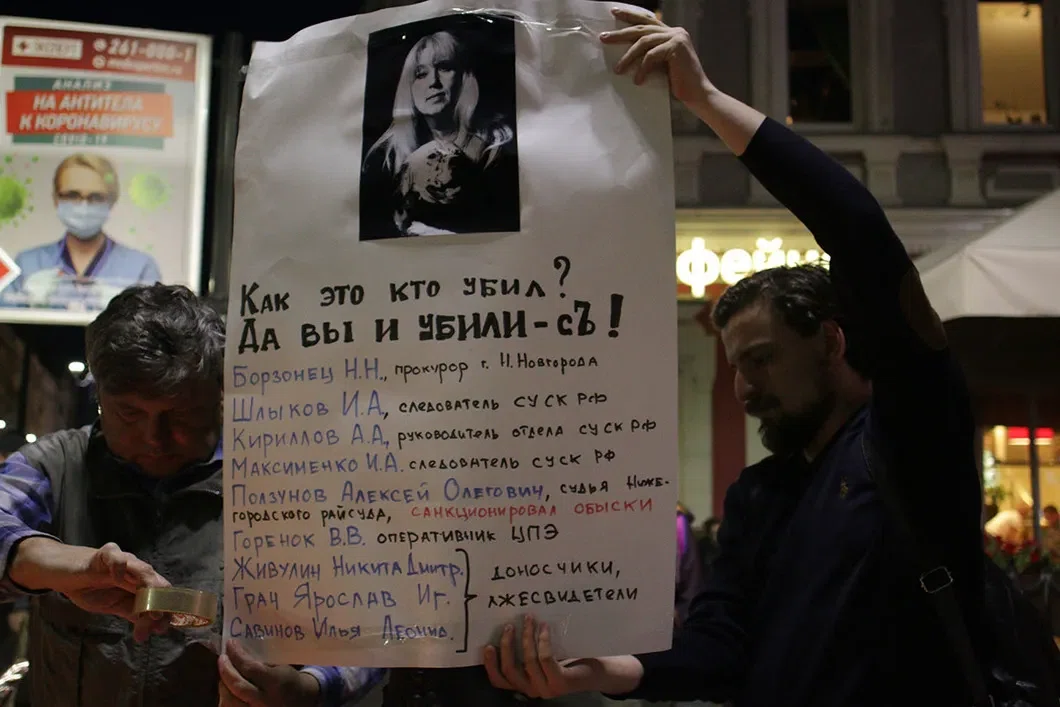 261-000-1
АНАЛИЗ
НА АНТИТЕЛА
К КОРОНАВИРУСУ
COVID-19
Как это кто убил?
Да вы и убили-съ!
Борзонец Н.Н., прокурор г. Н.Новгорода
Шлыков И.А, следователь СУ СК РФ
Кириллов А.А, руководитель отдела СУ СК РФ
Максименко И.А. следователь СУ СК РФ
Ползунов Алексей Олегович, судья Ниже-
городского райсуда, санкционировал обыски
Горенок В.В. оперативчик ЦПЭ
Живулин Никита Дмитр.
Грач Ярослав Иг.
Савинов Илья Леонид.
доносчики,
лжесвидетели